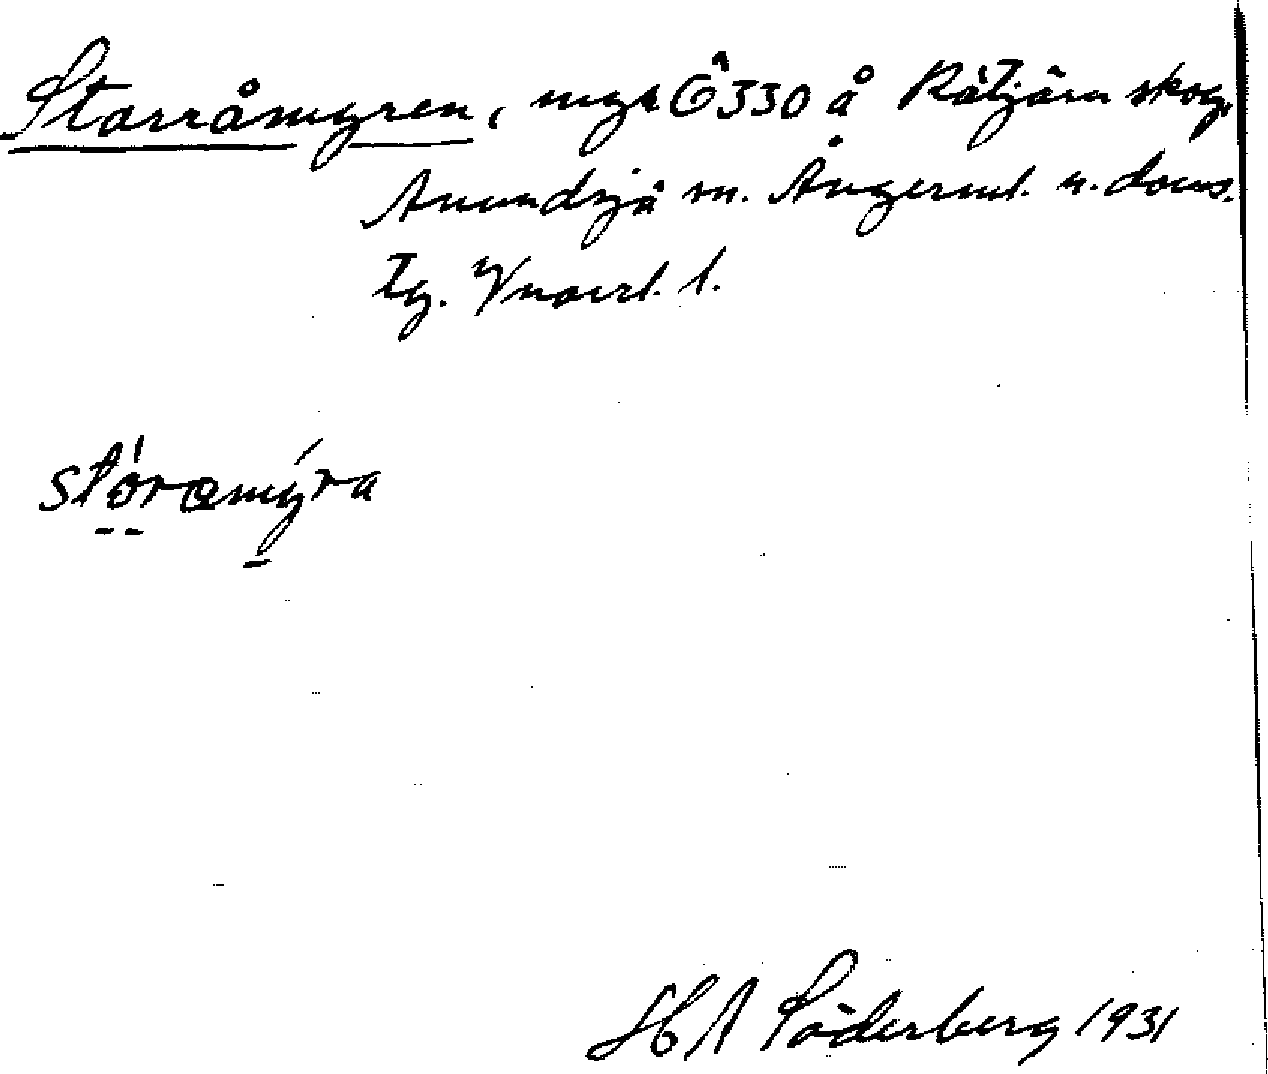 Starråmyren, myr Ô 330 å Råtjärn skog,
Anundsjö sn. Ångerml. n. doms.
Tg. V
stóræmýra
HA Söderberg 1931